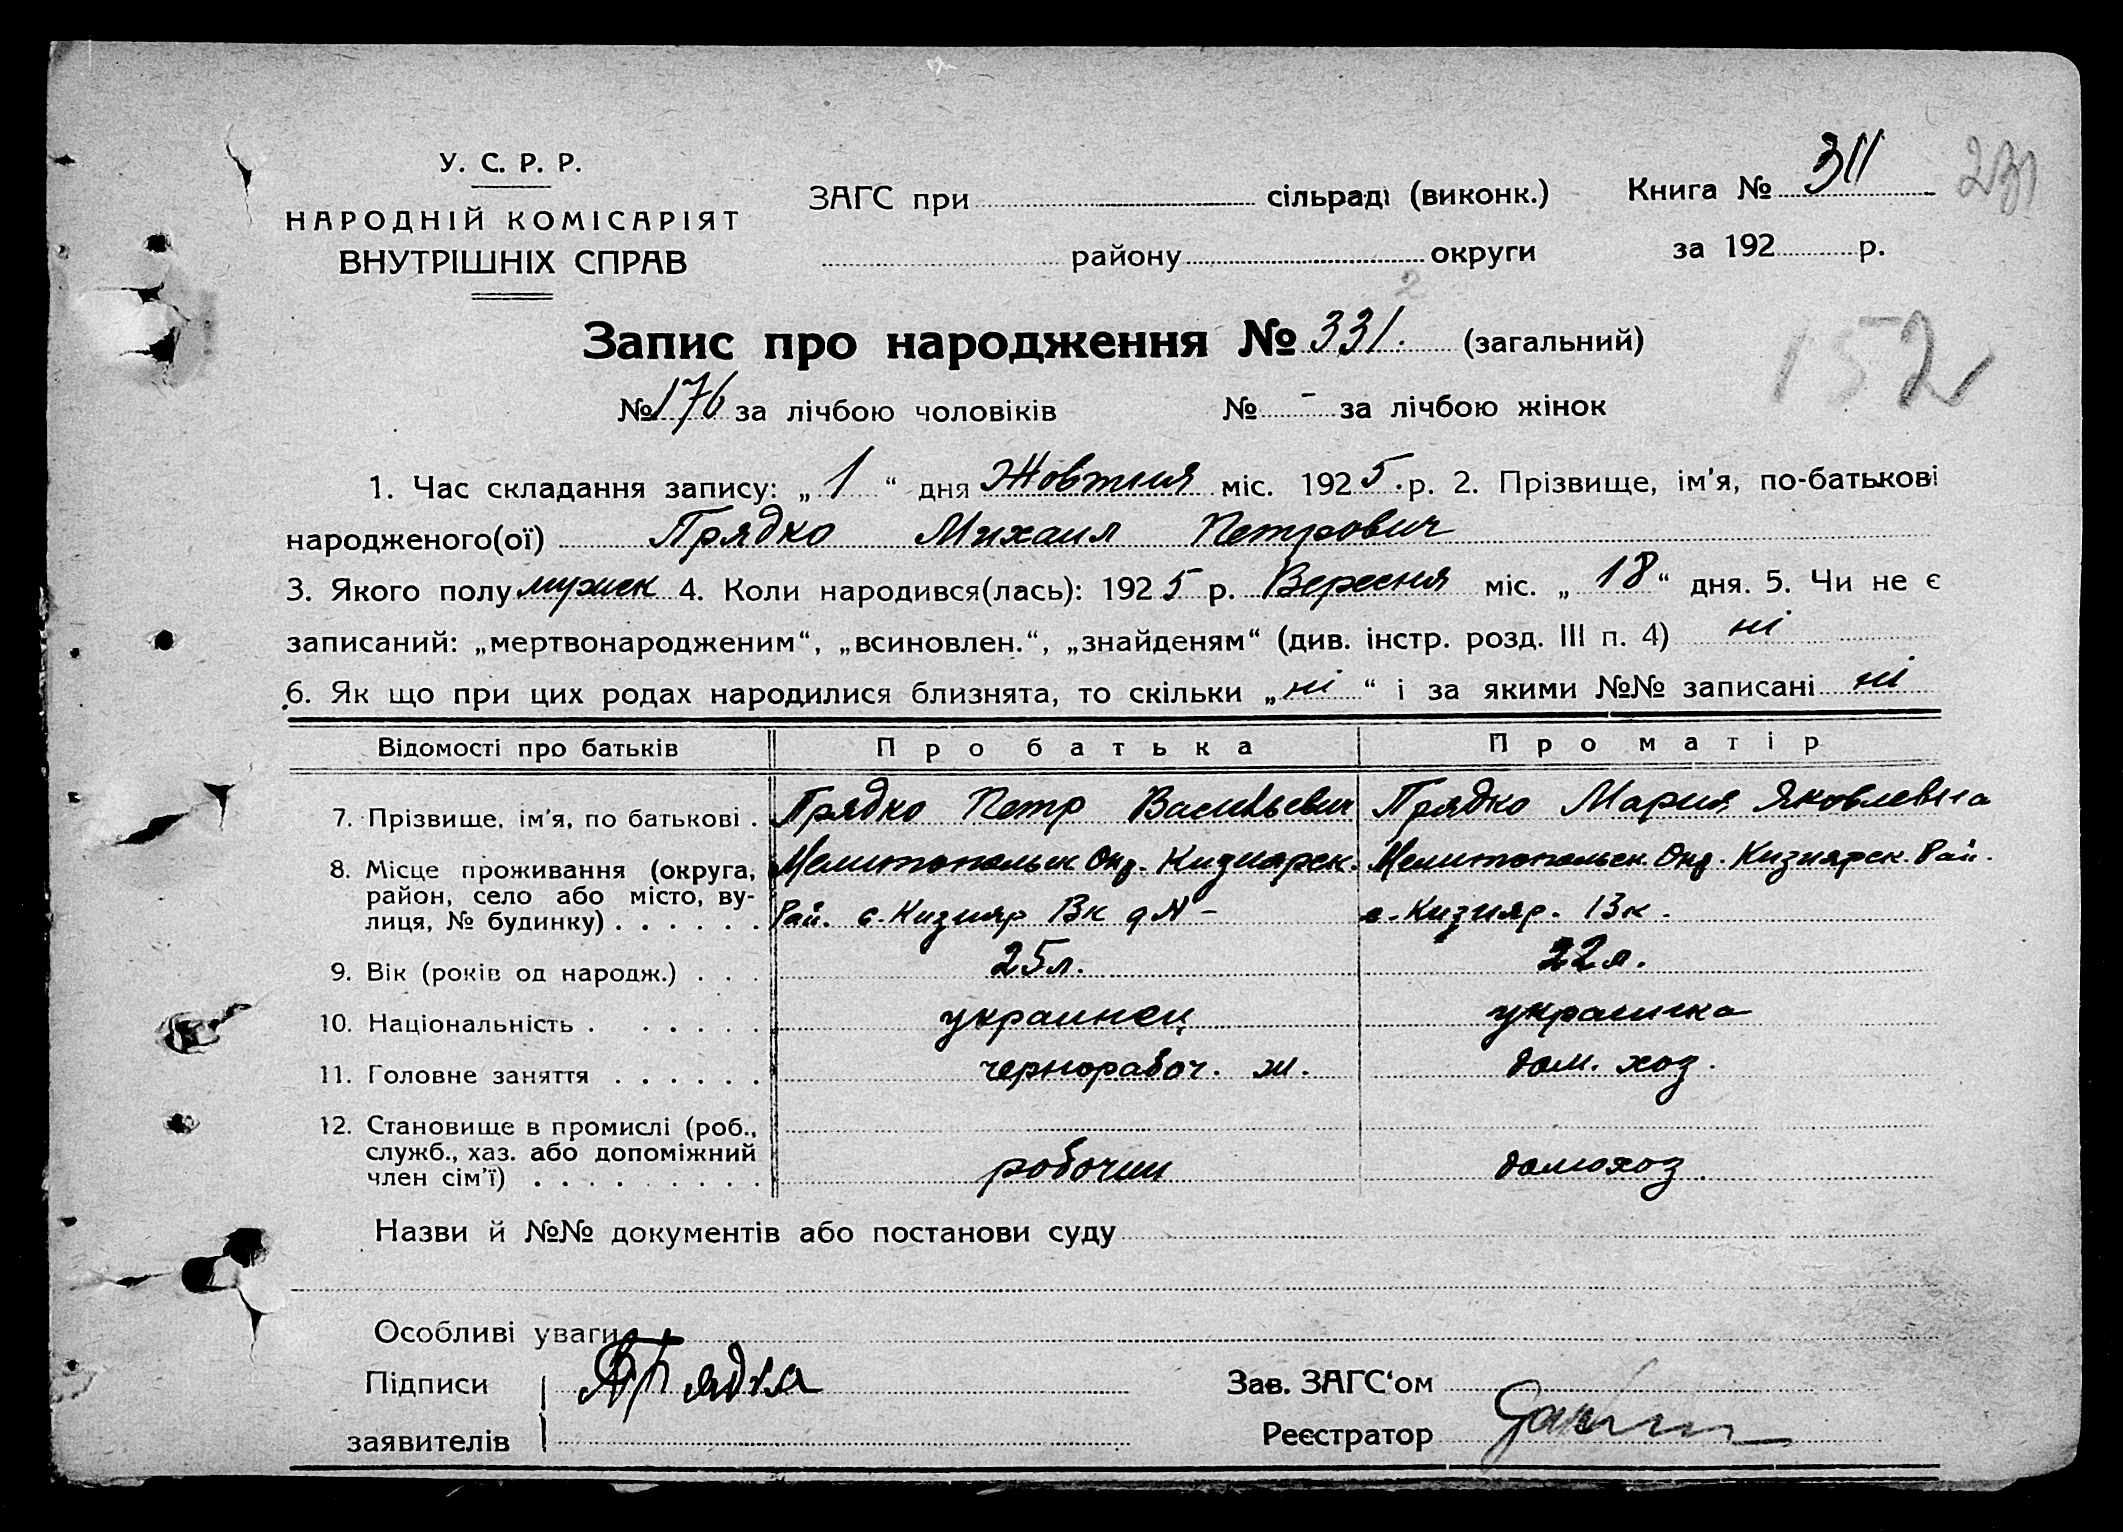 У. С. Р. Р.
НАРОДНІЙ КОМІСАРІЯТ
ВНУТРІШНІХ СПРАВ
ЗАГС при сільраді (виконк.)
району округи
Книга № 311
231
за 192 р.
2
Запис про народження № 331. (загальний)
152
№ 176 за лічбою чоловіків № - за лічбою жінок
1. Час складання запису: „ 1 “ дня Жовтня міс. 1925 р. 2. Прізвище, ім'я, по-батькові
народженого(ої) Прядко Михаил Петрович
3. Якого полу мужск 4. Коли народився(лась): 1925 р. Вересня міс. „ 18 “ дня. 5. Чи не є
записаний: „мертвонародженим“, „всиновлен.“, „знайденям“ (див. інстр. розд. III п. 4) ні
6. Як що при цих родах народилися близнята, то скільки „ ні “ і за якими №№ записані ні
Відомості про батьків Про батька Про матір
7. Прізвище, ім'я, по батькові . Прядко Петр Васильевич Прядко Мария Яковлевна
8. Місце проживання (округа, Мелитопольск Окр. Кизиярск. Мелитопольск. Окр. Кизиярск. Рай.
район, село або місто, ву-
лиця, № будинку) . . . . . . Рай. с. Кизияр Вк д № - с. Кизияр. Вк.
9. Вік (років од народж.) . . . 25 л. 22 л.
10. Національність . . . . . . украинец украинка
11. Головне заняття . . . . . . чернорабоч. ж. дом. хоз.
12. Становище в промислі (роб.,
служб., хаз. або допоміжний
член сім'ї) . . . . . . . . . робочий домохоз.
Назви й №№ документів або постанови суду
Особливі уваги
Підписи Прядка Зав. ЗАГС'ом
заявителів Реєстратор